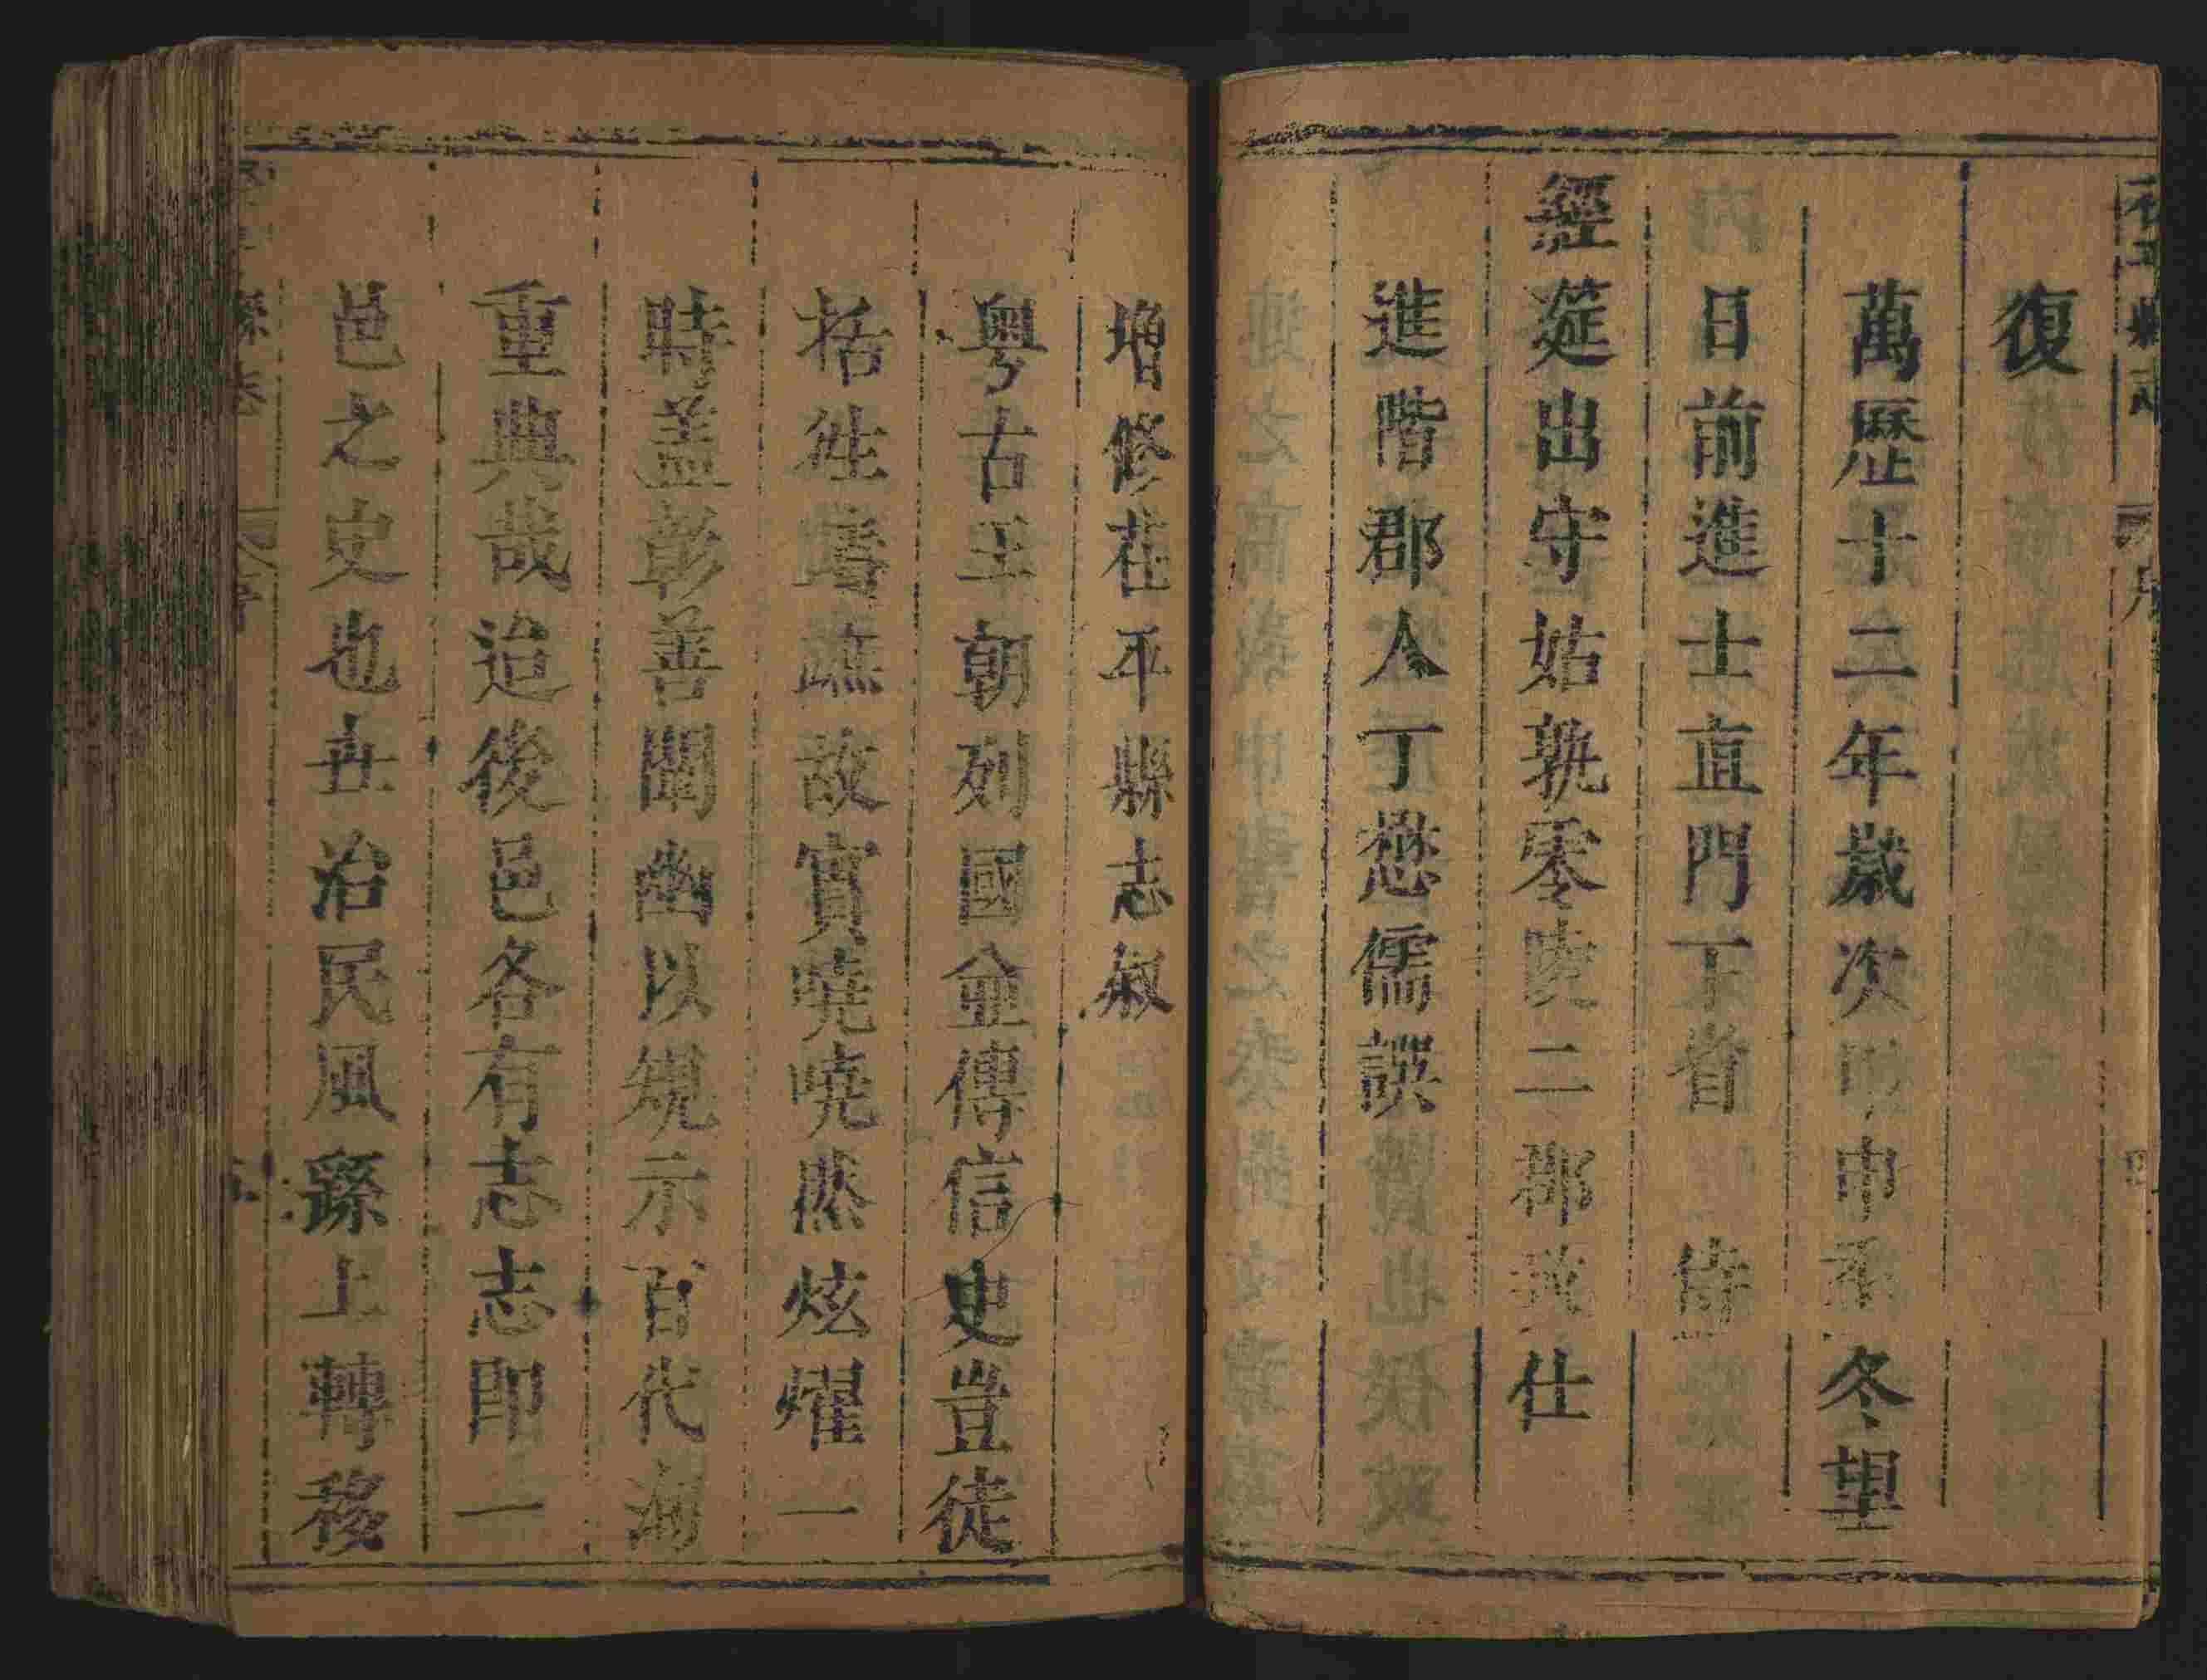 復
萬歷十二年歲次甲申孟冬望
日前進士直門下省 侍
經筵出守姑孰零陵二郡 仕
進階郡人丁懋儒譔
增修茌平縣志敘
粵古王朝列國僉傳信史豈徒
括往疇蹠故實曉曉然炫燿一
時蓋彰善闡幽以規示百代洵
重典哉迨後邑各有志志卽一
邑之史也丗治民風繇上轉移